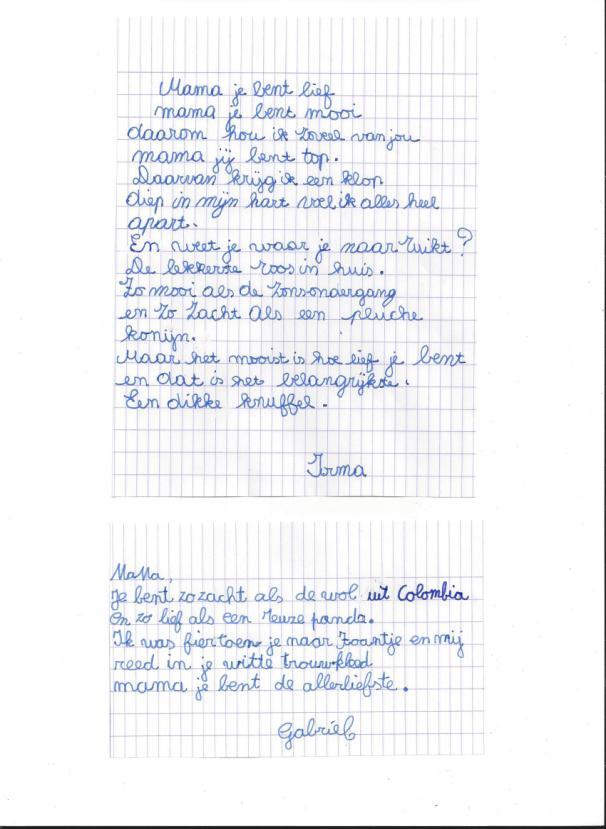 Mama je bent lief
mama je bent mooi
daarom hou ik zoveel van jou
mama jij bent top.
Daarvan krijg ik een klop
diep in mijn hart voel ik alles heel
apart.
En weet je waar je naar ruikt?
De lekkerste roos in huis.
Zo mooi als de zonsondergang
en zo zacht als een pluche
konijn.
Maar het mooist is hoe lief je bent
en dat is het belangrijkste.
Een dikke knuffel.
Irma
MaMa,
Je bent zo zacht als de wol uit Colombia
En zo lief als een reuze panda.
Ik was fier toen je naar en mij
reed in je witte trouwkleed
mama je bent de allerliefste.
Gabriël